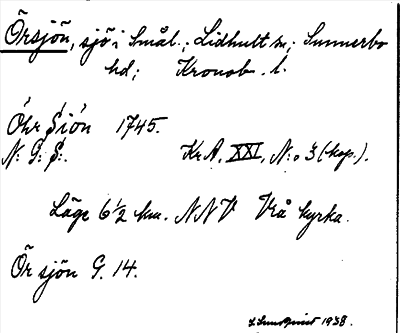 Örsjön, sjö i Smål.; Lidhult sn; Sunnerbo
hd; Kronob. l.
Öhr Siön 1745.
N: G: S:. Kr A, XXI, N:o 3 (kop.).
Läge 6 1/2 km. NNV Vrå kyrka.
Ör sjön G. 14.
Lundquist 1938.